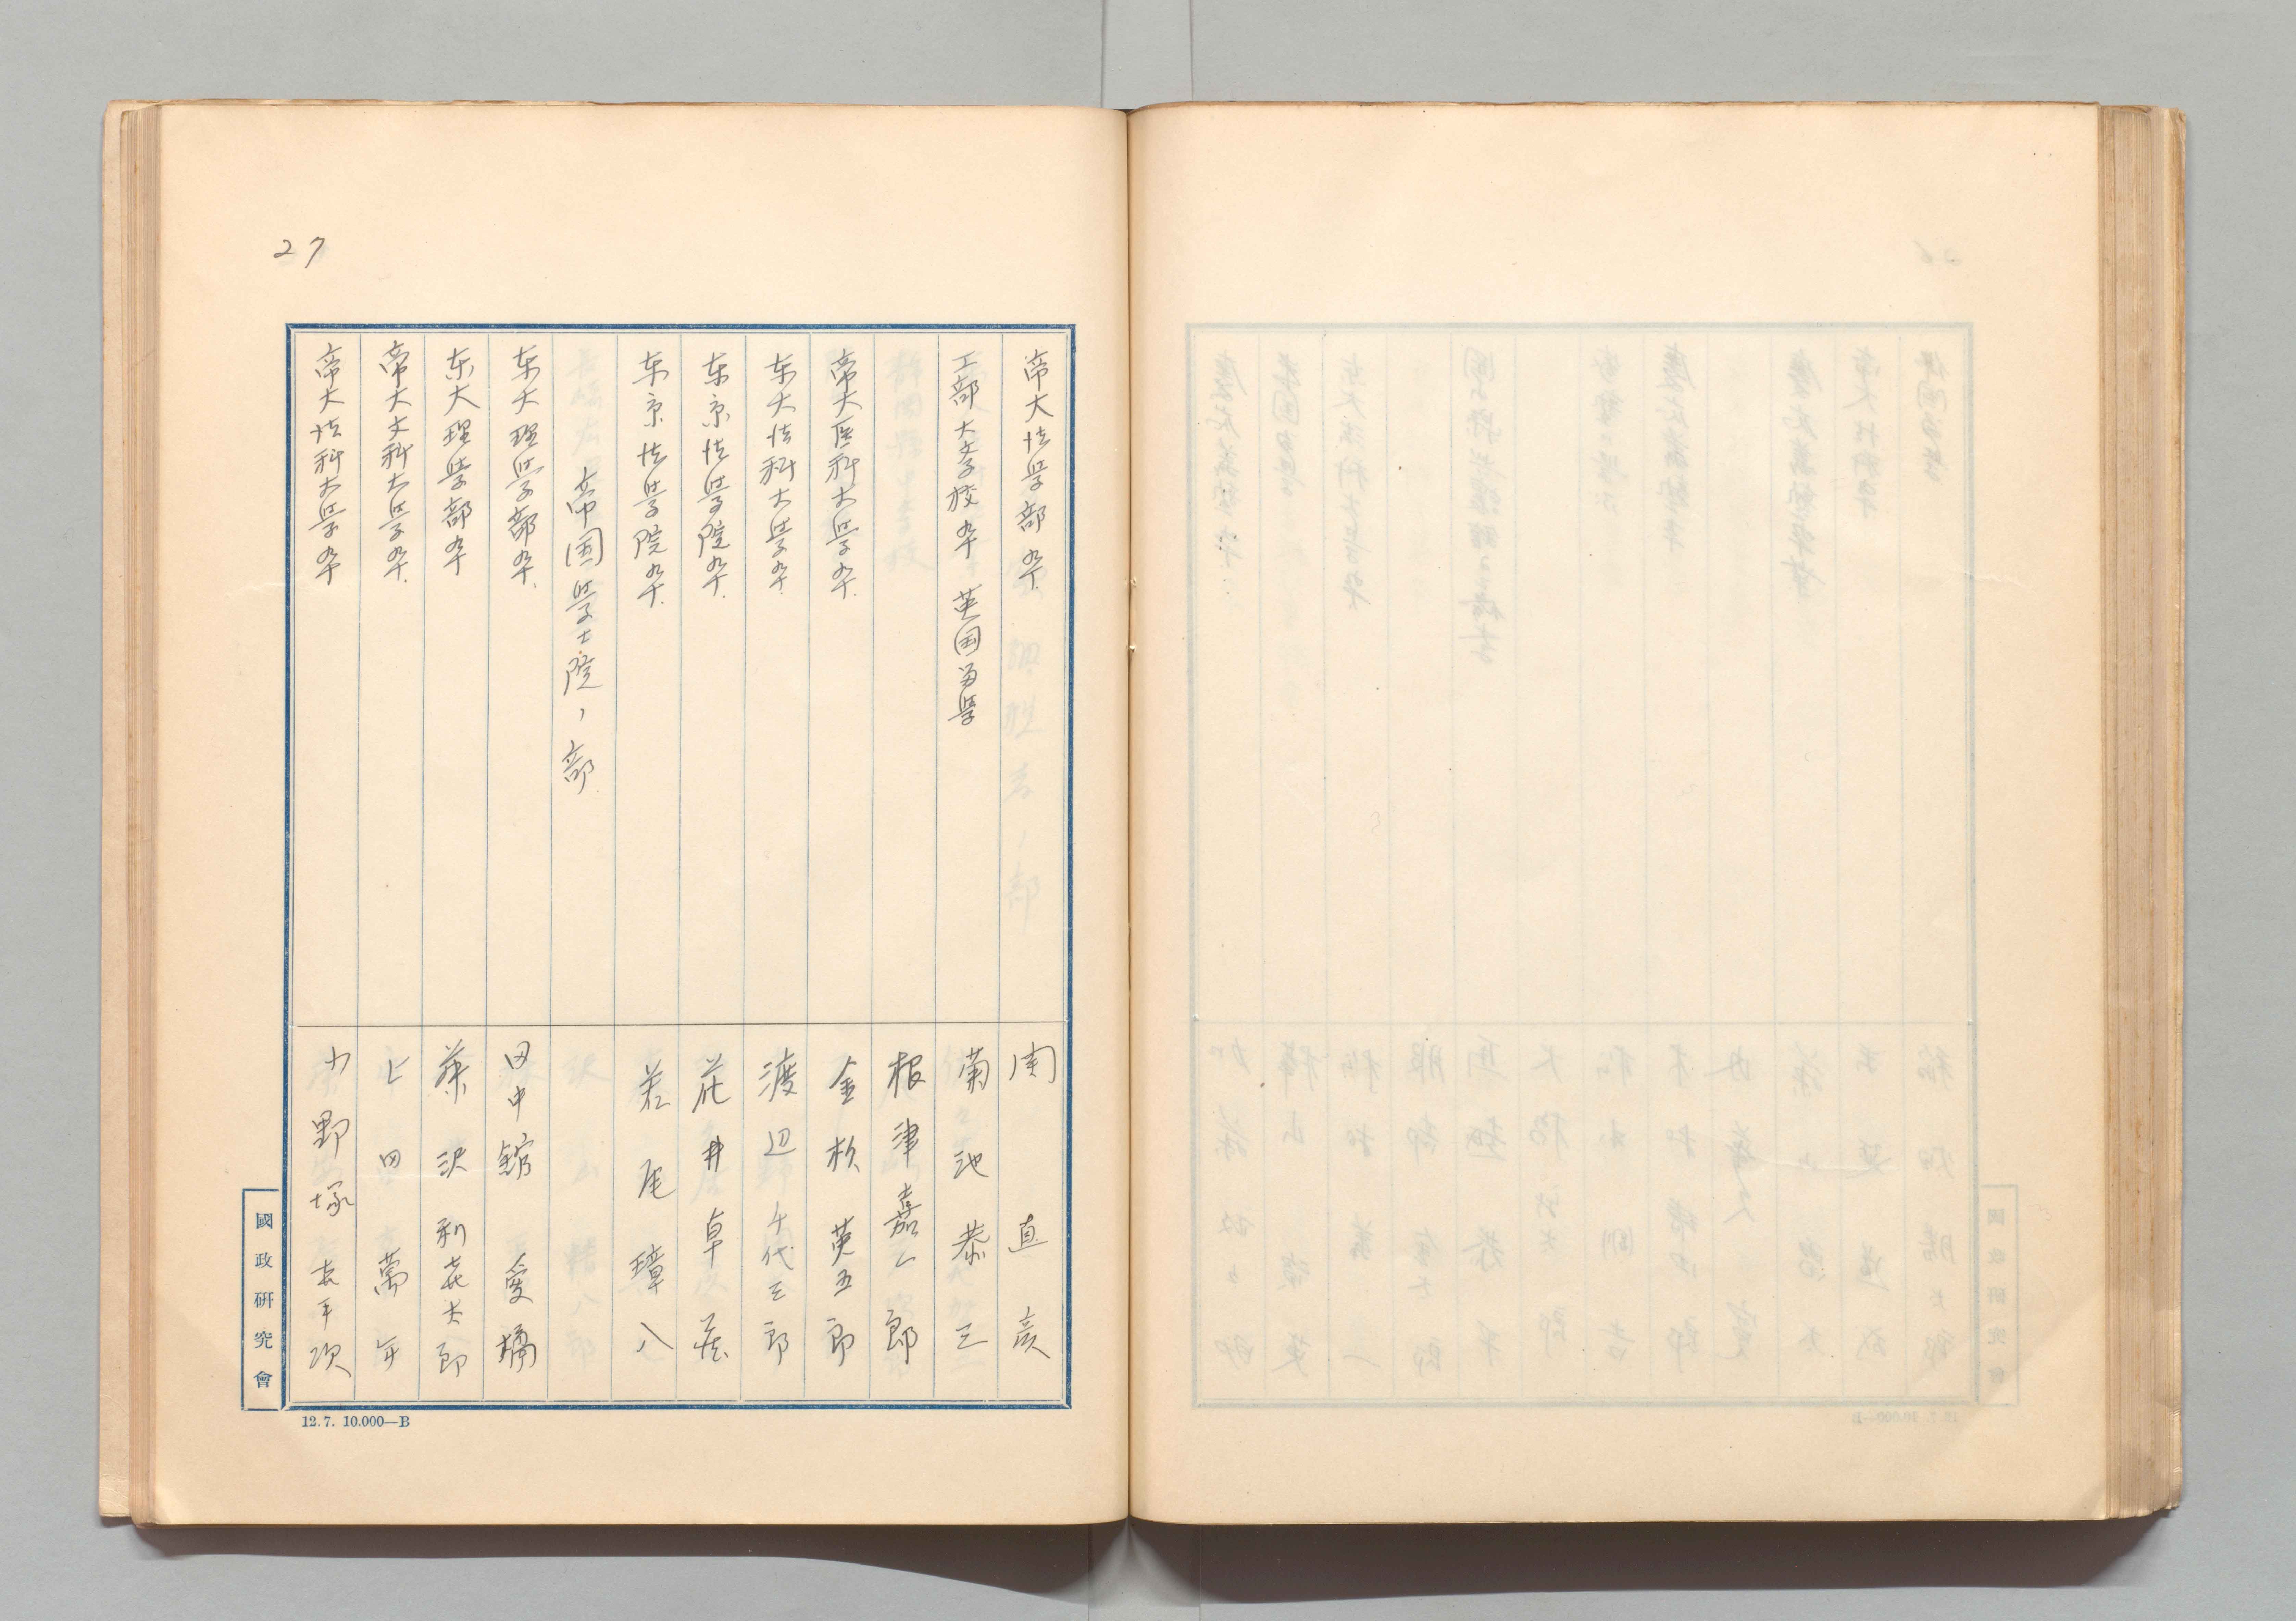 27
帝大法学部卒. 関直彦
工部大学校卒 英国留学 菊池恭三
根津嘉一郎
帝大医科大学卒. 金杉英五郎
东大法科大学卒. 渡辺千代三郎
东京法学院卒. 花井卓蔵
东京法学院卒. 若尾璋八
帝国学士院ノ部
东大理学部卒. 田中舘愛橘
东大理学部卒 藤沢利喜太郎
帝大文科大学卒. 上田萬年
帝大法科大学卒 小野塚喜平次
國政研究會
12.7. 10.000—B